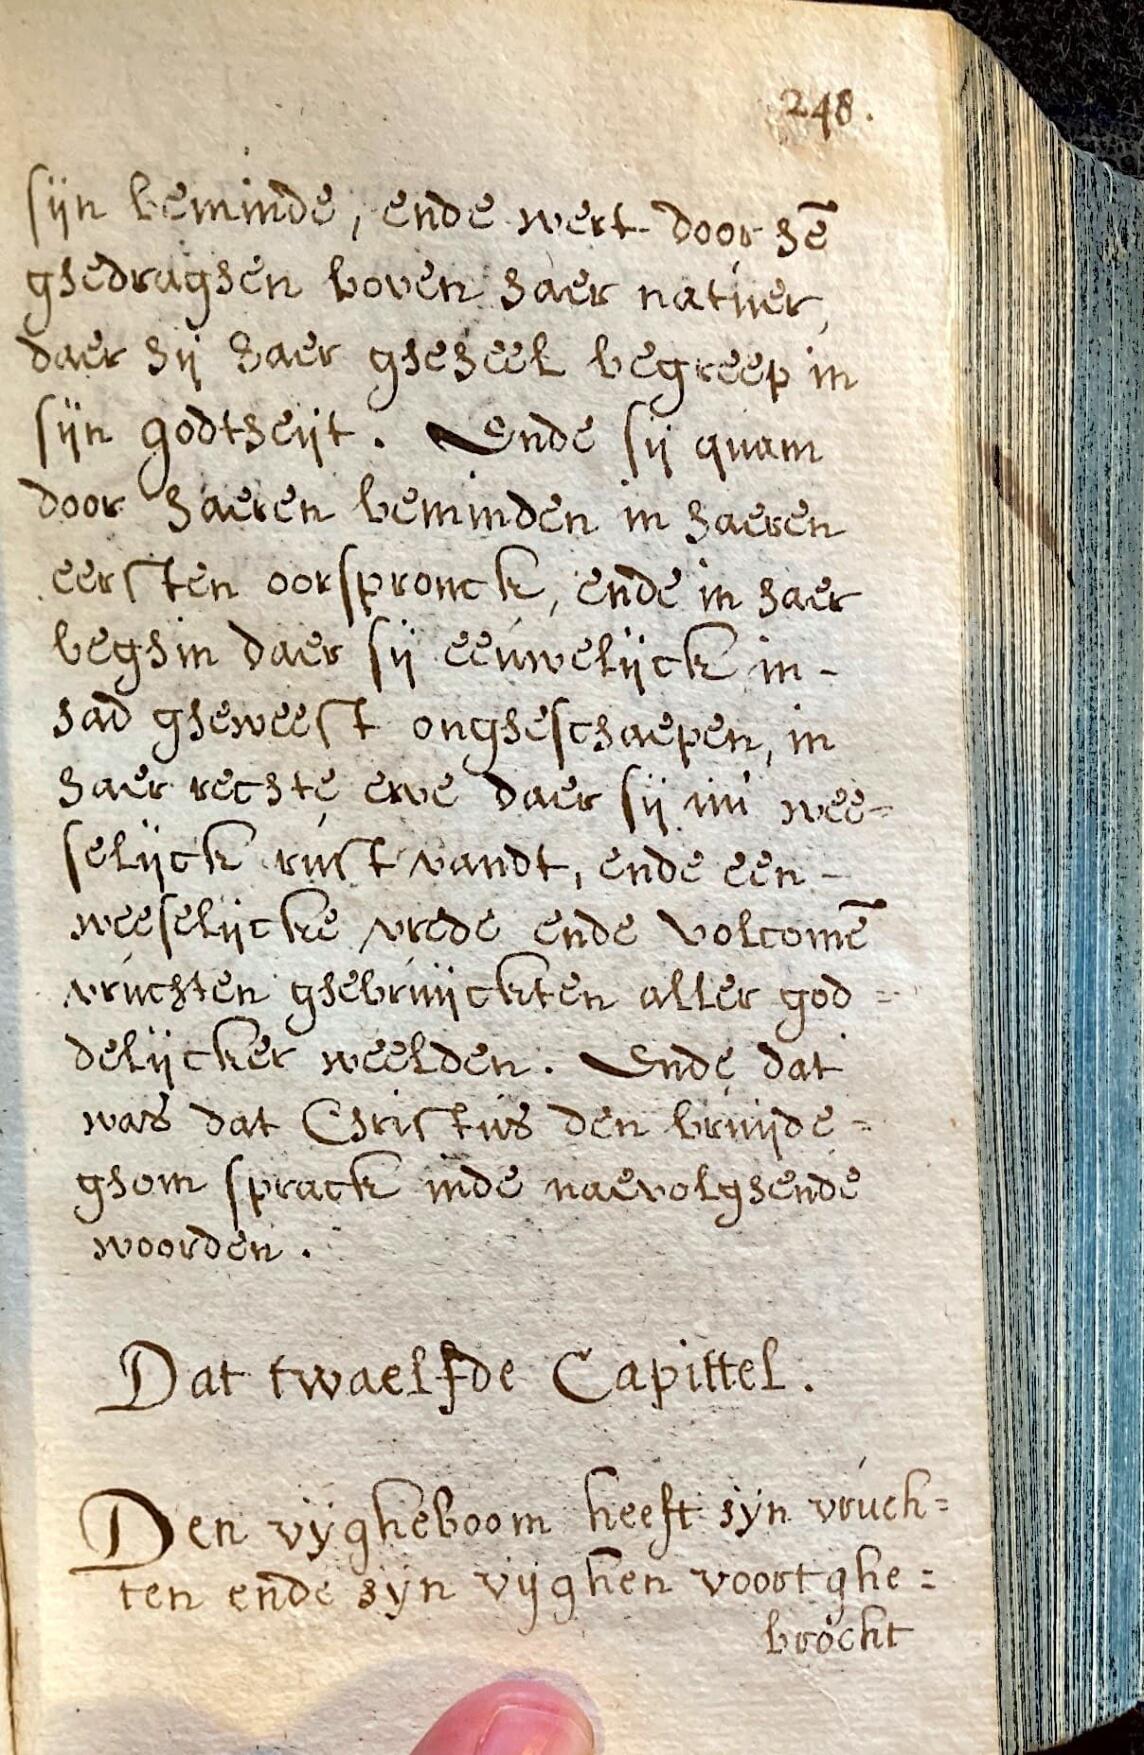 248.
sijn beminde, ende wert door hē
ghedraghen boven haer natuer,
daer hij haer gheheel begreep in
sijn godtheijt. Ende sij quam
door haeren beminden in haeren
eersten oorspronck, ende in haer
beghin daer sij eeuwelijck in-
had gheweest ongheschaepen, in
haer rechte erve daer sij nu wee=
selijck rust vandt, ende een-
weeselijcke vrede ende volcomē
vruchten ghebruijckten aller god=
delijcker weelden. Ende dat
was dat Christus den bruijde=
ghom sprack inde naevolghende
woorden.
Dat twaelfde Capittel.
Den vijgheboom heeft sijn vruch=
ten ende sijn vijghen voort ghe=
brocht